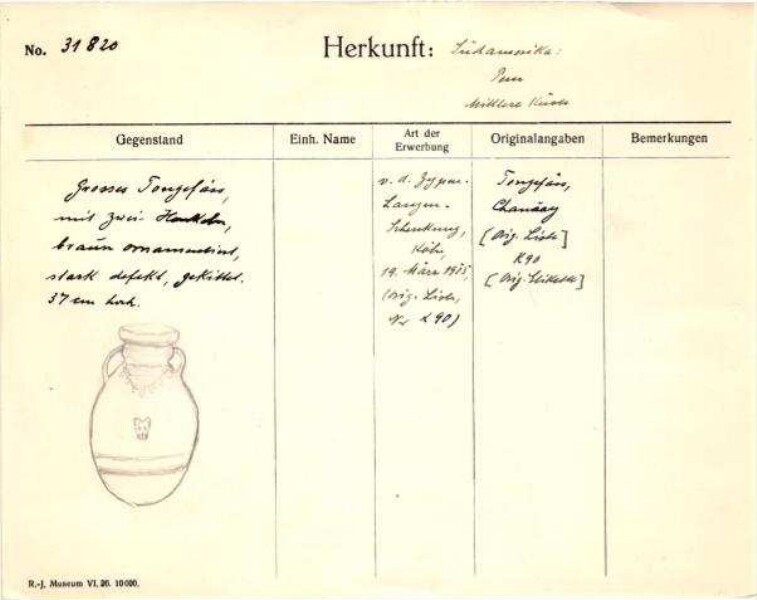 No. 31820
Herkunft: Südamerika:
Peru
Mittlere Küste
Gegenstand
Einh. Name
Art der Erwerbung
Originalangaben
Bemerkungen
Grosses Tongefäss,
mit zwei Henkeln,
braun ornamentiert,
stark defekt, gekittet.
37 cm hoch.
v. d. Zypen-
Langen-
Schenkung,
Köln,
19. März 1908,
(Orig. Liste,
Nr K 90)
Tongefäss,
Chancay
[Orig. Liste]
K 90
[Orig. Etikette]
R.-J. Museum VI. 20. 10000.